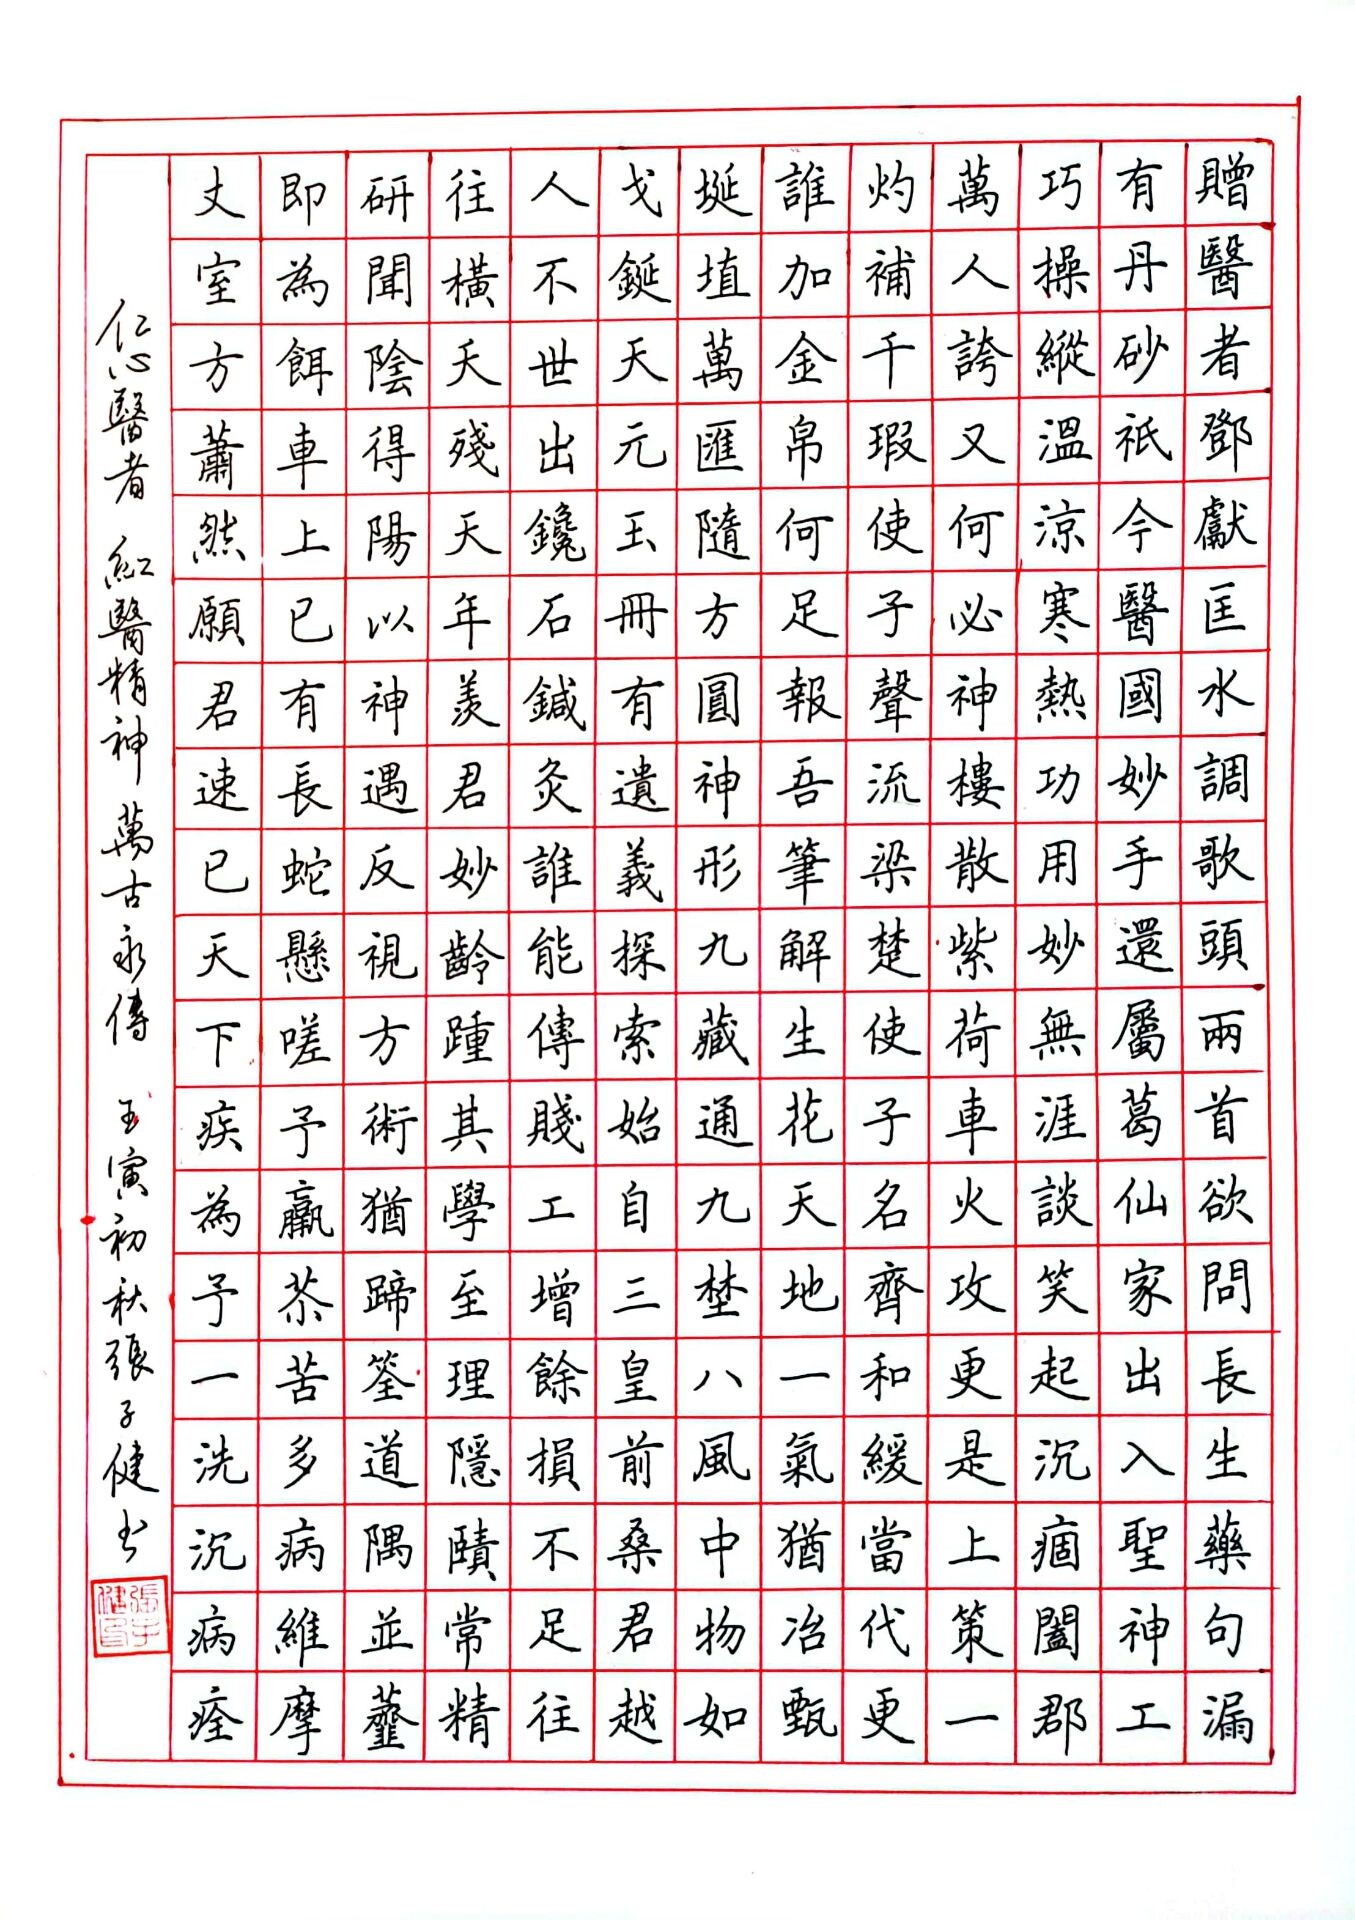 贈醫者鄧獻匡水調歌頭兩首欲問長生藥句漏
有丹砂祇今醫國妙手還屬葛仙家出入聖神工
巧操縱溫涼寒熱功用妙無涯談笑起沉痼闔郡
萬人誇又何必神樓散紫荷車火攻更是上策一
灼補千瑕使子聲流梁楚使子名齊和緩當代更
誰加金帛何足報吾筆解生花天地一氣猶冶甄
埏埴萬匯隨方圓神形九藏通九埜八風中物如
戈鋋天元玉冊有遺義探索始自三皇前桑君越
人不世出鑱石鍼灸誰能傳賤工增餘損不足往
往橫夭殘天年羨君妙齡踵其學至理隱賾常精
研聞陰得陽以神遇反視方術猶蹄筌道隅並虀
即為餌車上已有長蛇懸嗟予羸苶苦多病維摩
丈室方蕭然願君速已天下疾為予一洗沉病痊
仁心醫者 紅醫精神萬古永傳 壬寅初秋張子健書
張子健印